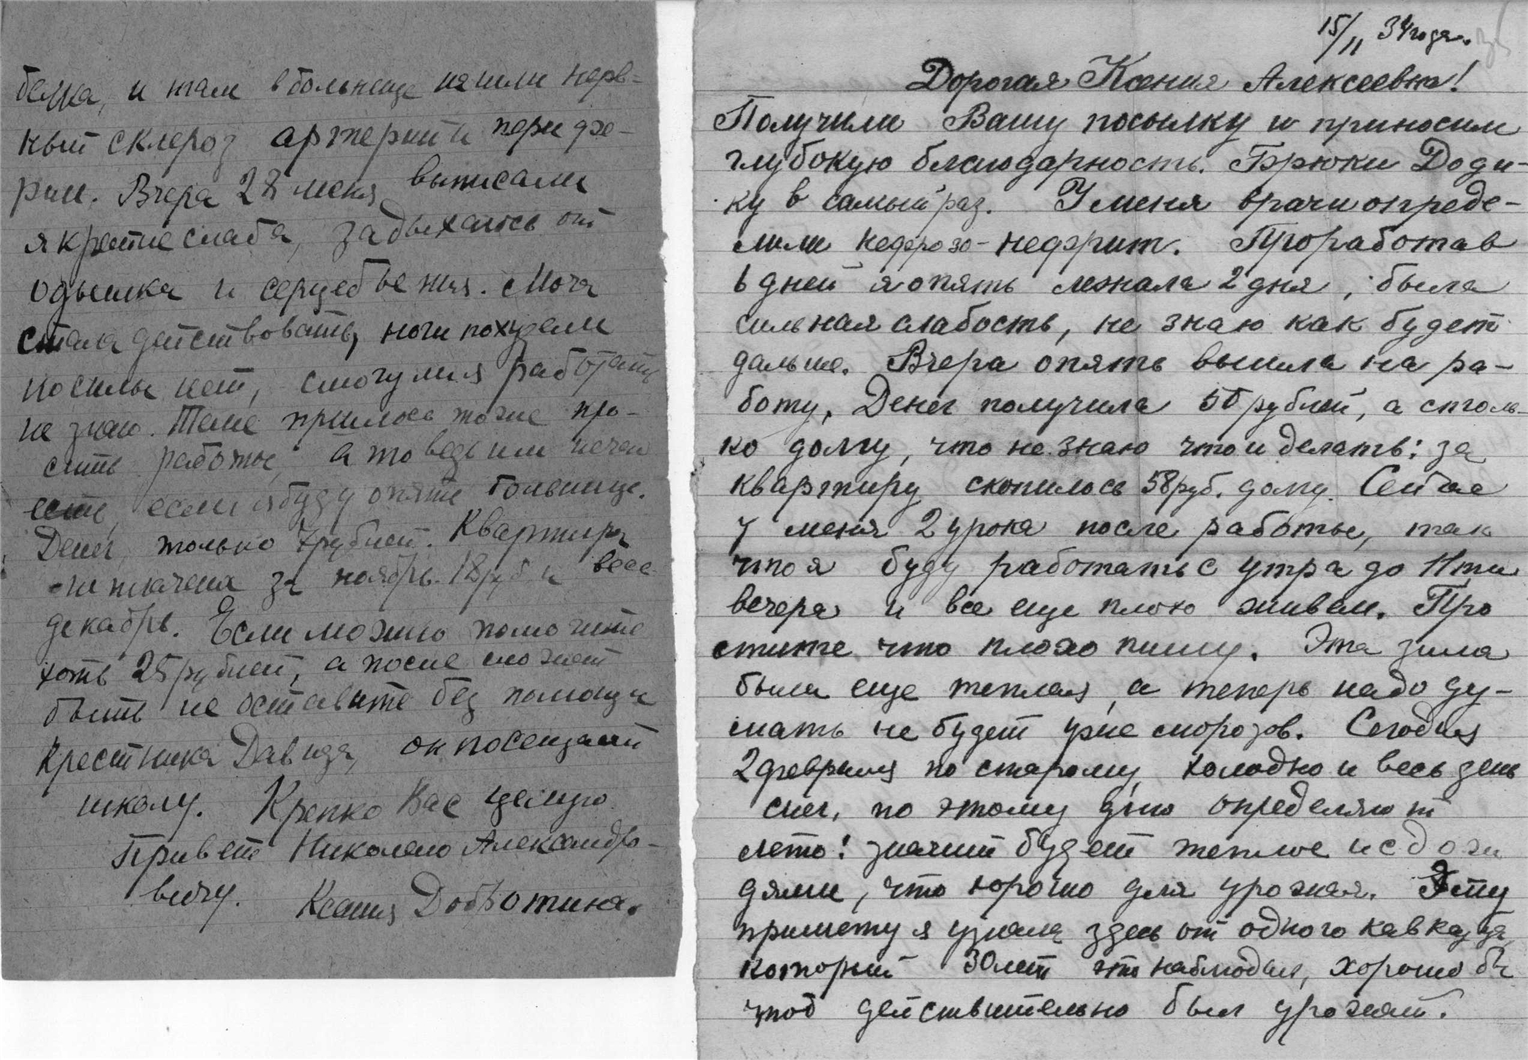 белка, и там в больнице нашли нерв-
ный склероз артерий и перифе-
рии. Вчера 28 меня выписали
я крепце слаба, задыхаюсь от
одышка и сердцебьения. Моча
стала действовать, ноги похудели
но силы нет, смогу ли я работать
не знаю. Теме пришлось тоже про-
сить работы, а то ведь им нечего
есть, если я буду опять больнице.
Денег только рублей. Квартира
не плачена за ноябрь 18 руб и весь
декабрь. Если можно помогите
хоть 25 рублей, а после может
быть не оставите без помощи
крестника Давида, он посещает
школу. Крепко Вас целую
Привет Николаю Александро-
вичу. Ксения Добротина.
15/II 34 года.
Дорогая Ксения Алексеевна!
Получили Вашу посылку и приносим
глубокую благодарность. Брюки Доди-
ку в самый раз. У меня врачи опреде-
лили нефрозо-нефрит. Проработав
6 дней я опять лежала 2 дня, была
сильная слабость, не знаю как будет
дальше. Вчера опять вышла на ра-
боту. Денег получила 50 рублей, а столь-
ко долгу, что не знаю что и делать: за
квартиру скопилось 58 руб. долгу. Сейчас
у меня 2 урока после работы, так
что я буду работать с утра до 11ти
вечера и все еще плохо живем. Про
стите что плохо пишу. Эта зима
была еще теплая, а теперь надо ду-
мать не будет уже морозов. Сегодня
2 февраля по старому, холодно и весь день
снег, по этому дню определяют
лето: значит будет теплое и с дож
дями, что хорошо для урожая. Эту
примету я узнала здесь от одного кавказца,
который 30 лет это наблюдал, хорошо бы
чтоб действительно был урожай.